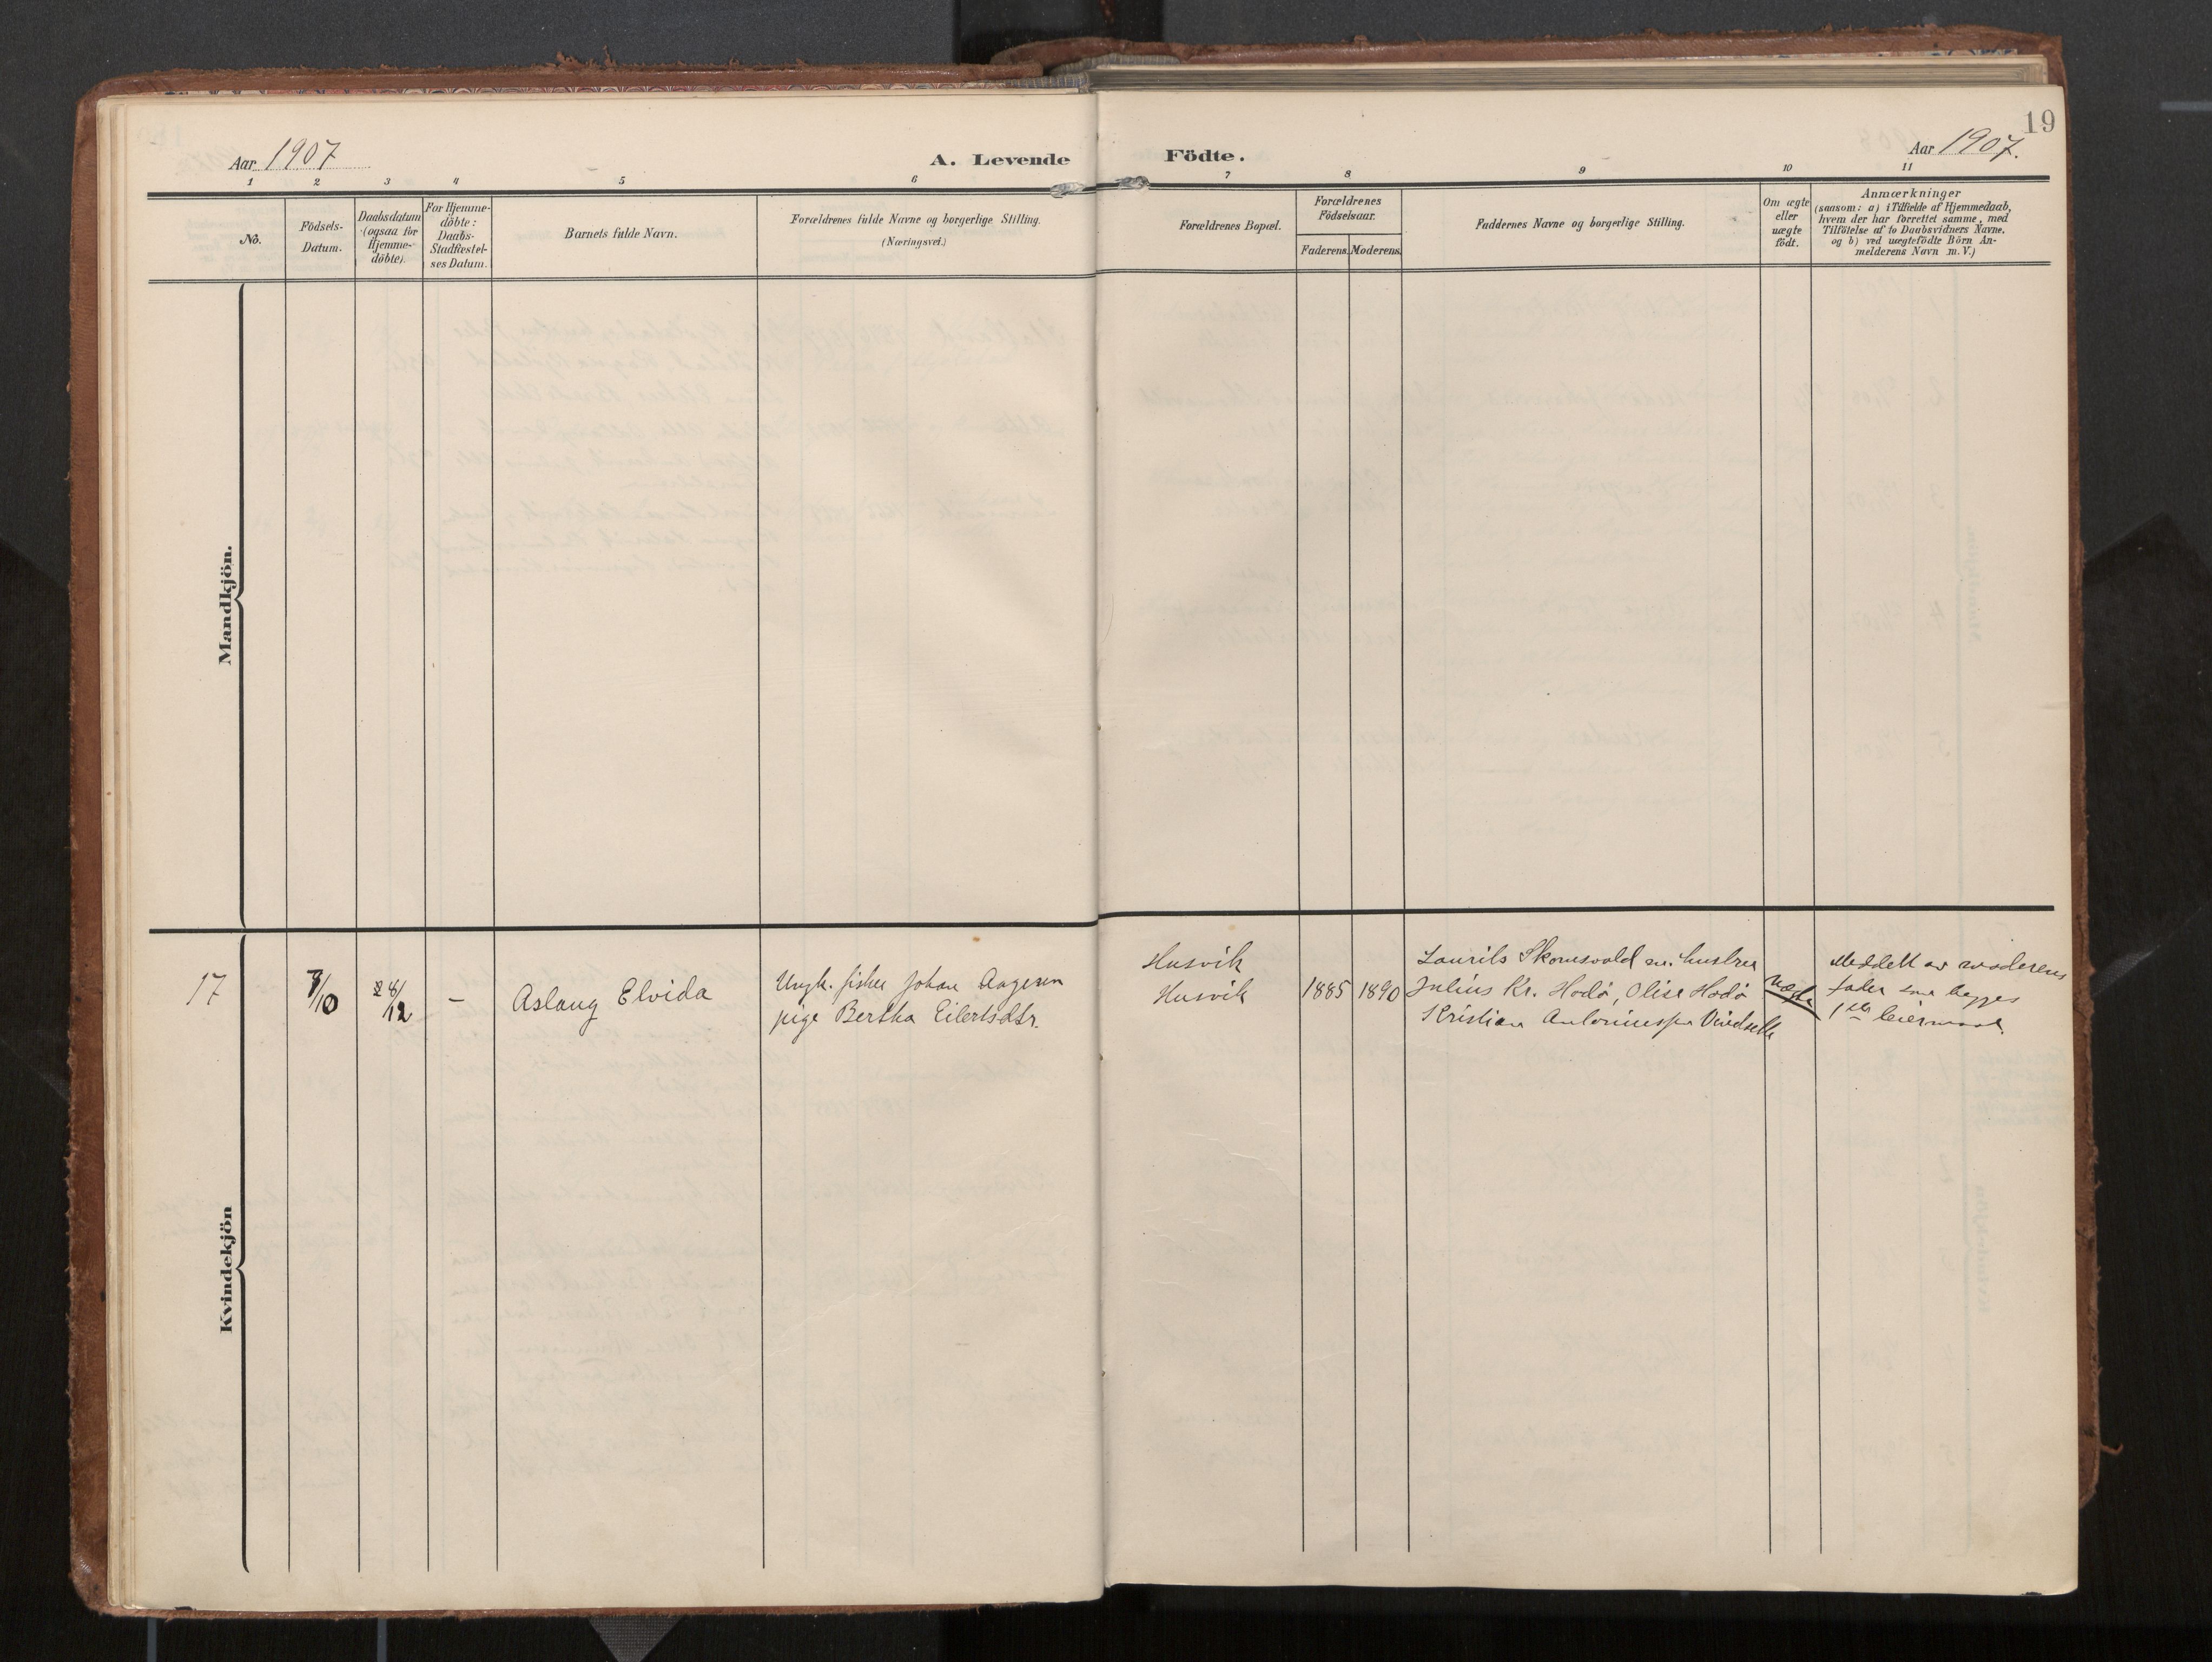 19
Aar 1907
A. Levende Födte.
Aar 1907.
1 2 3 4 5 6 7 8 9 10 11
No.
Födsels-
Datum.
Daabsdatum
(ogsaa for
Hjemme-
döbte).
For Hjemme-
döbte:
Daabs-
Stadfæstel-
ses Datum.
Barnets fulde Navn.
Forældrenes fulde Navne og borgerlige Stilling.
(Næringsvei.)
Forældrenes Bopæl.
Forældrenes
Födselsaar.
Faderens. Moderens.
Faddernes Navne og borgerlige Stilling.
Om ægte
eller
uægte
födt.
Anmærkninger
(saasom: a) i Tilfælde af Hjemmedaab,
hvem der har forrettet samme, med
Tilföielse af to Daabsvidners Navne,
og b) ved uægtefödte Börn An-
melderens Navn m.V.)
Mandkjön.
Kvindekjön
17
7/10
28/12
–
Aslaug Elvida
Ungk. fisker Johan Aagesen
pige Bertha Eilertsdtr.
Husvik
Husvik
1885
1890
Laurits Skomsvold en. hustru
Julius Kr. Hodø, Olise Hodø
Kristian
uægte
Meddelt av moderens
fader som begges
1ste leiermaal.